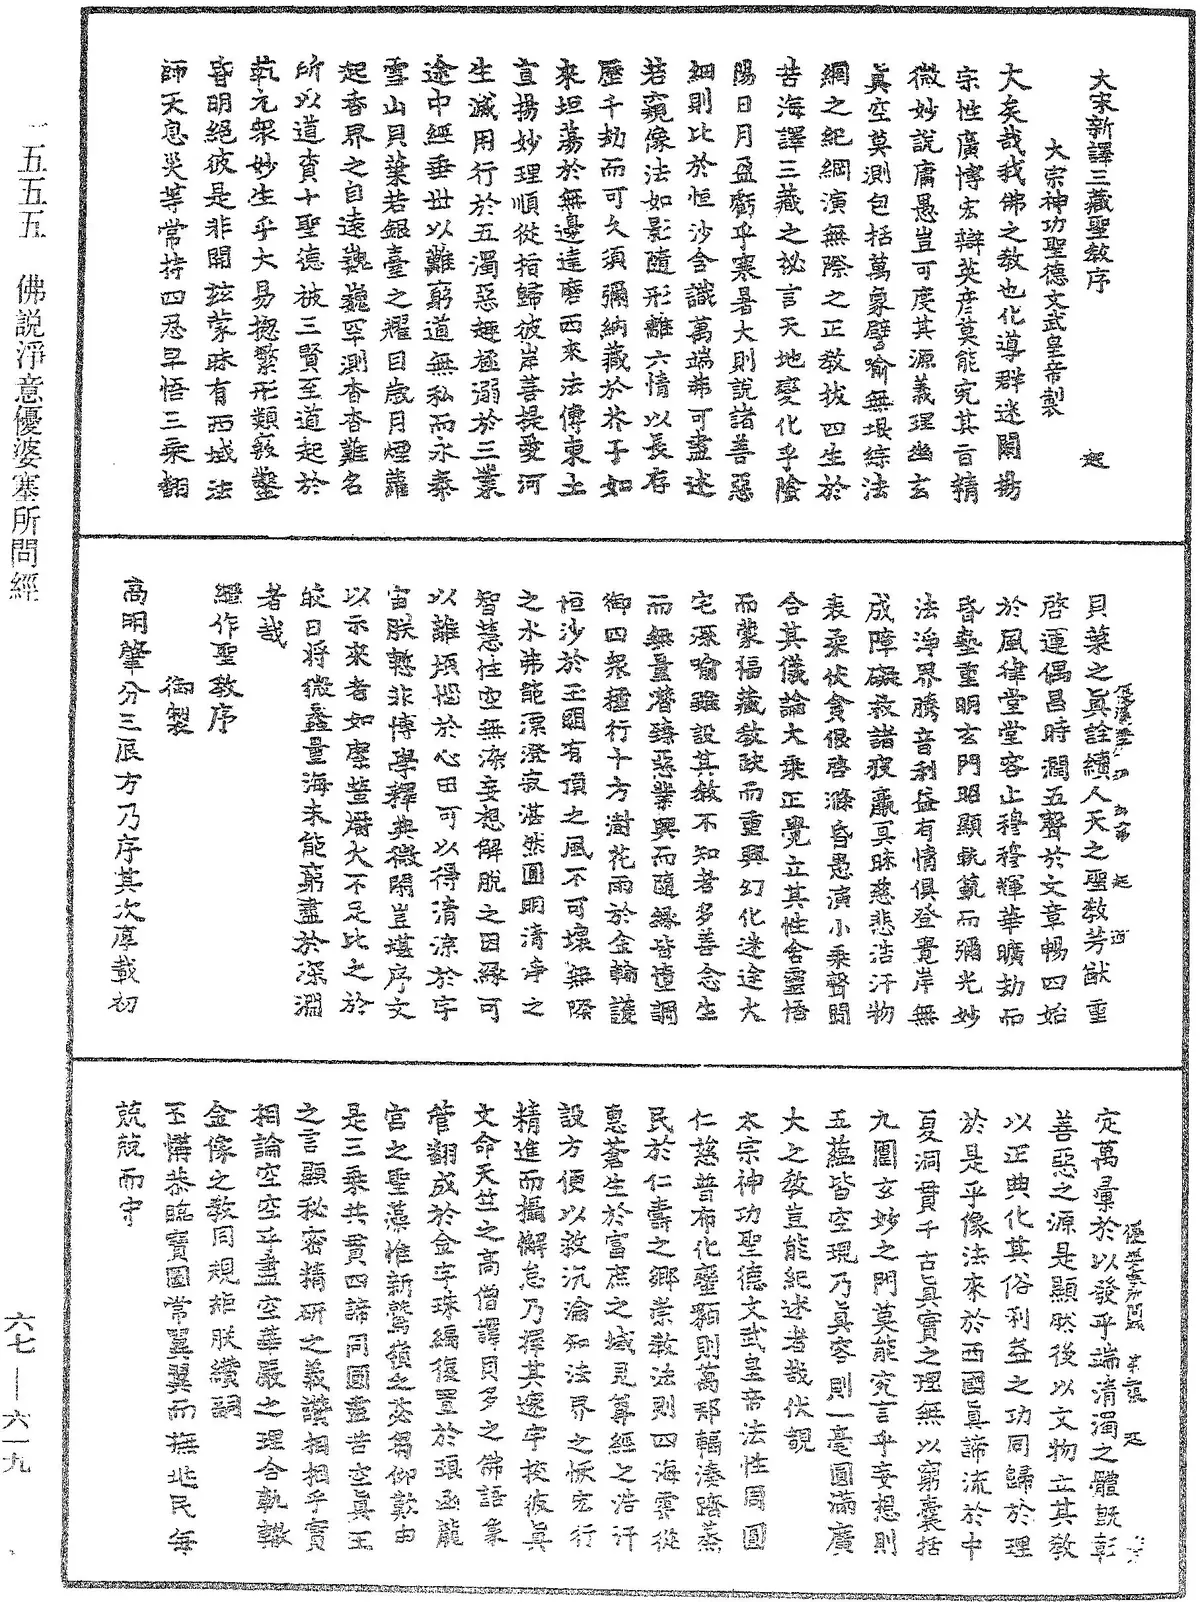 大宋新譯三藏聖教序 起
大宗神功聖德文武皇帝製
大矣哉我佛之教也化導群迷闡揚
宗性廣博宏辯英彦莫能究其旨精
微妙說庸愚豈可度其源義理幽玄
真空莫測包括萬象譬喻無垠綜法
網之紀綱演無際之正教拔四生於
苦海譯三藏之祕言天地變化乎陰
陽日月盈虧乎寒暑大則說諸善惡
細則比於恒沙含識萬端弗可盡述
若窺像法如影隨形離六情以長存
歷千劫而可久須彌納藏於芥子如
來坦蕩於無邊達磨西來法傳東土
宣揚妙理順從指歸彼岸菩提愛河
生滅用行於五濁惡趣拯溺於三業
途中經垂世以難窮道無私而永泰
雪山貝葉若銀臺之耀目歲月煙蘿
起香界之自遠巍巍罕測杳杳難名
所以道資十聖德被三賢至道起於
乾元衆妙生乎大易揔繁形類竅鑿
昏明絕彼是非開兹蒙昧有西域法
師天息災等常持四忍早悟三乘翻
貝葉之真詮續人天之聖教芳猷重
啓運偶昌時潤五聲於文章暢四始
於風律堂堂容止穆穆輝華曠劫而
昏墊重明玄門昭顯軌範而彌光妙
法淨界騰音利益有情俱登覺岸無
成障礙救諸疲羸冥昧慈悲浩汗物
表柔伏貪很啓滌昏愚演小乘聲聞
合其儀論大乘正覺立其性含靈悟
而蒙福藏教缺而重興幻化迷途火
宅深喻雖設其教不知者多善念生
而無量潛臻惡業興而隨緣皆墮調
御四衆積行十方澍花雨於金輪護
恒沙於玉闕有頂之風不可壞無際
之水弗能漂澄寂湛然圓明清淨之
智慧性空無染妄想解脫之因緣可
以離煩惱於心田可以得清涼於宇
宙朕慙非博學釋典微閑豈堪序文
以示來者如縻螢爝火不足比之於
皎日將微蠡量海未能窮盡於深淵
者哉
繼作聖教序
御製
高明肇分三辰方乃序其次厚載初
定萬彙於以發乎端清濁之體既彰
善惡之源是顯然後以文物立其教
以正典化其俗利益之功同歸於理
於是乎像法來於西國真諦流於中
夏洞貫千古真實之理無以窮囊括
九圍玄妙之門莫能究言乎妄想則
五蘊皆空現乃真容則一毫圓滿廣
大之教豈能紀述者哉伏覩
太宗神功聖德文武皇帝法性周圓
仁慈普布化塵顯則萬邦輻湊躋蒸
民於仁壽之鄉崇教法則四海雲從
惠蒼生於富庶之域見尊經之浩汗
設方便以救沉淪知法界之恢宏行
精進而攝懈怠乃擇其邃宇校彼真
文命天竺之高僧譯貝多之佛語象
管翻成於金字珠編復置於琅函龍
宮之聖藻惟新鷲嶺之苾蒭仰歎由
是三乘共貫四諦同圓盡苦空真王
之言顯秘密精研之義讚相相乎實
相論空空乎盡空華嚴之理合軌轍
金像之教同規矩朕纘嗣
丕搆恭臨寶圖常翼翼而撫兆民每
兢兢而守
一五五五 佛說淨意優婆塞所問經
六七—六一九